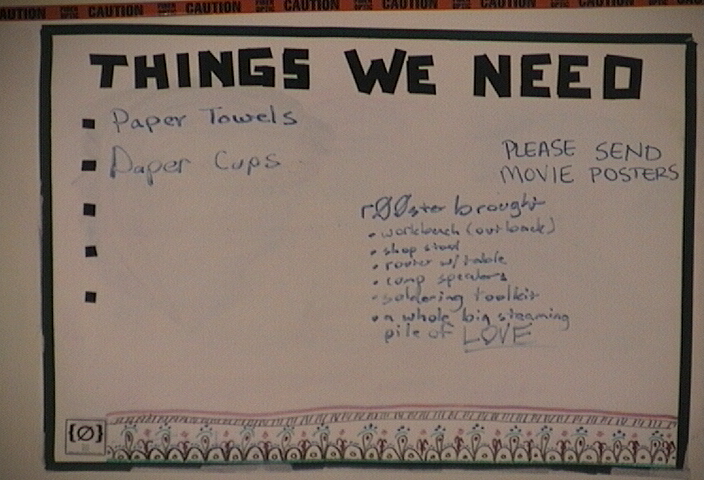 CAUTION CAUTION CAUTION CAUTION CAUTION CAUTION CAUTION CAUTION
THINGS WE NEED
Paper Towels
Paper Cups
PLEASE SEND
MOVIE POSTERS
rØØster brought
• workbench (out back)
• shop stool
• router w/ table
• comp speakers
• soldering toolkit
• a whole big steaming
pile of LOVE
{Ø}